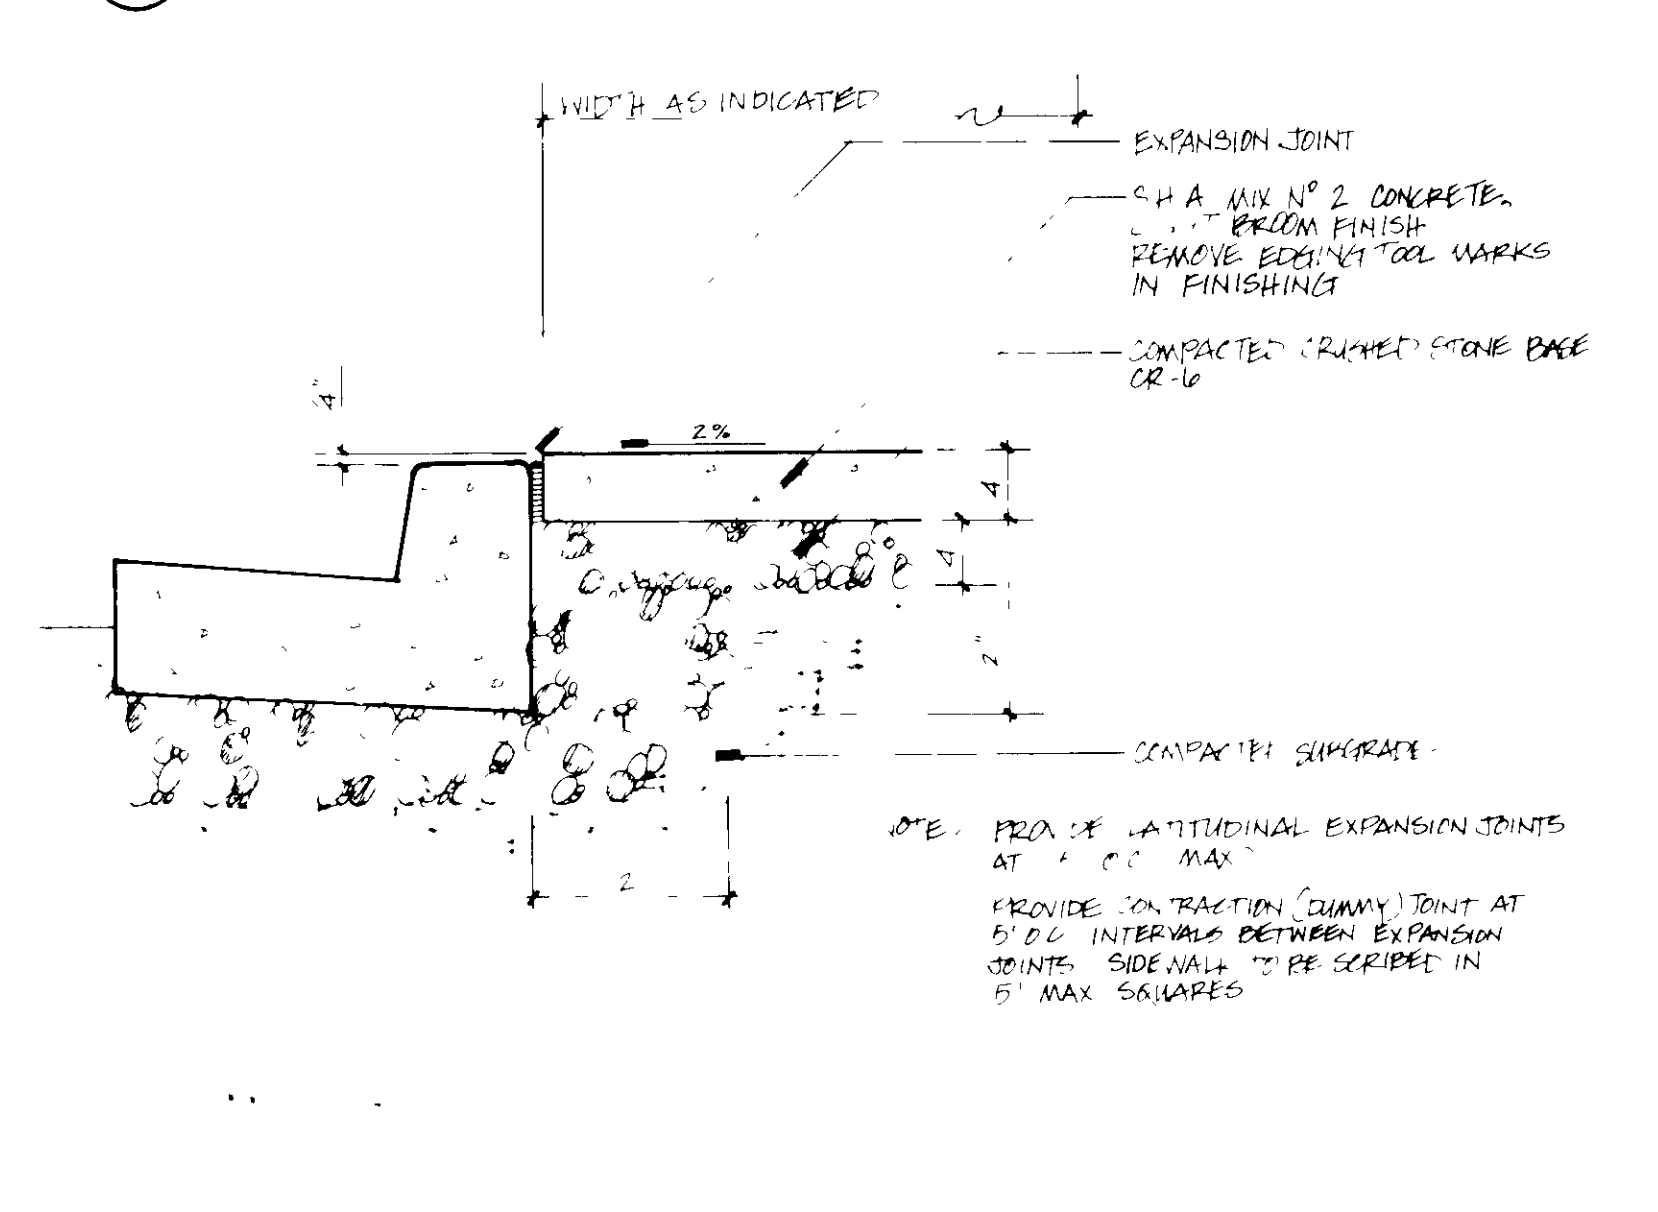 WIDTH AS INDICATED
EXPANSION JOINT
SHA MIX Nº 2 CONCRETE.
BROOM FINISH
REMOVE EDGING TOOL MARKS
IN FINISHING
COMPACTED CRUSHED STONE BASE
CR-6
4"
2%
4
4
2"
COMPACTED SUBGRADE
NOTE. PROVIDE LATITUDINAL EXPANSION JOINTS
AT O.C. MAX
2
PROVIDE CONTRACTION (DUMMY) JOINT AT
5' OC INTERVALS BETWEEN EXPANSION
JOINTS SIDEWALK TO BE SCRIBED IN
5' MAX SQUARES